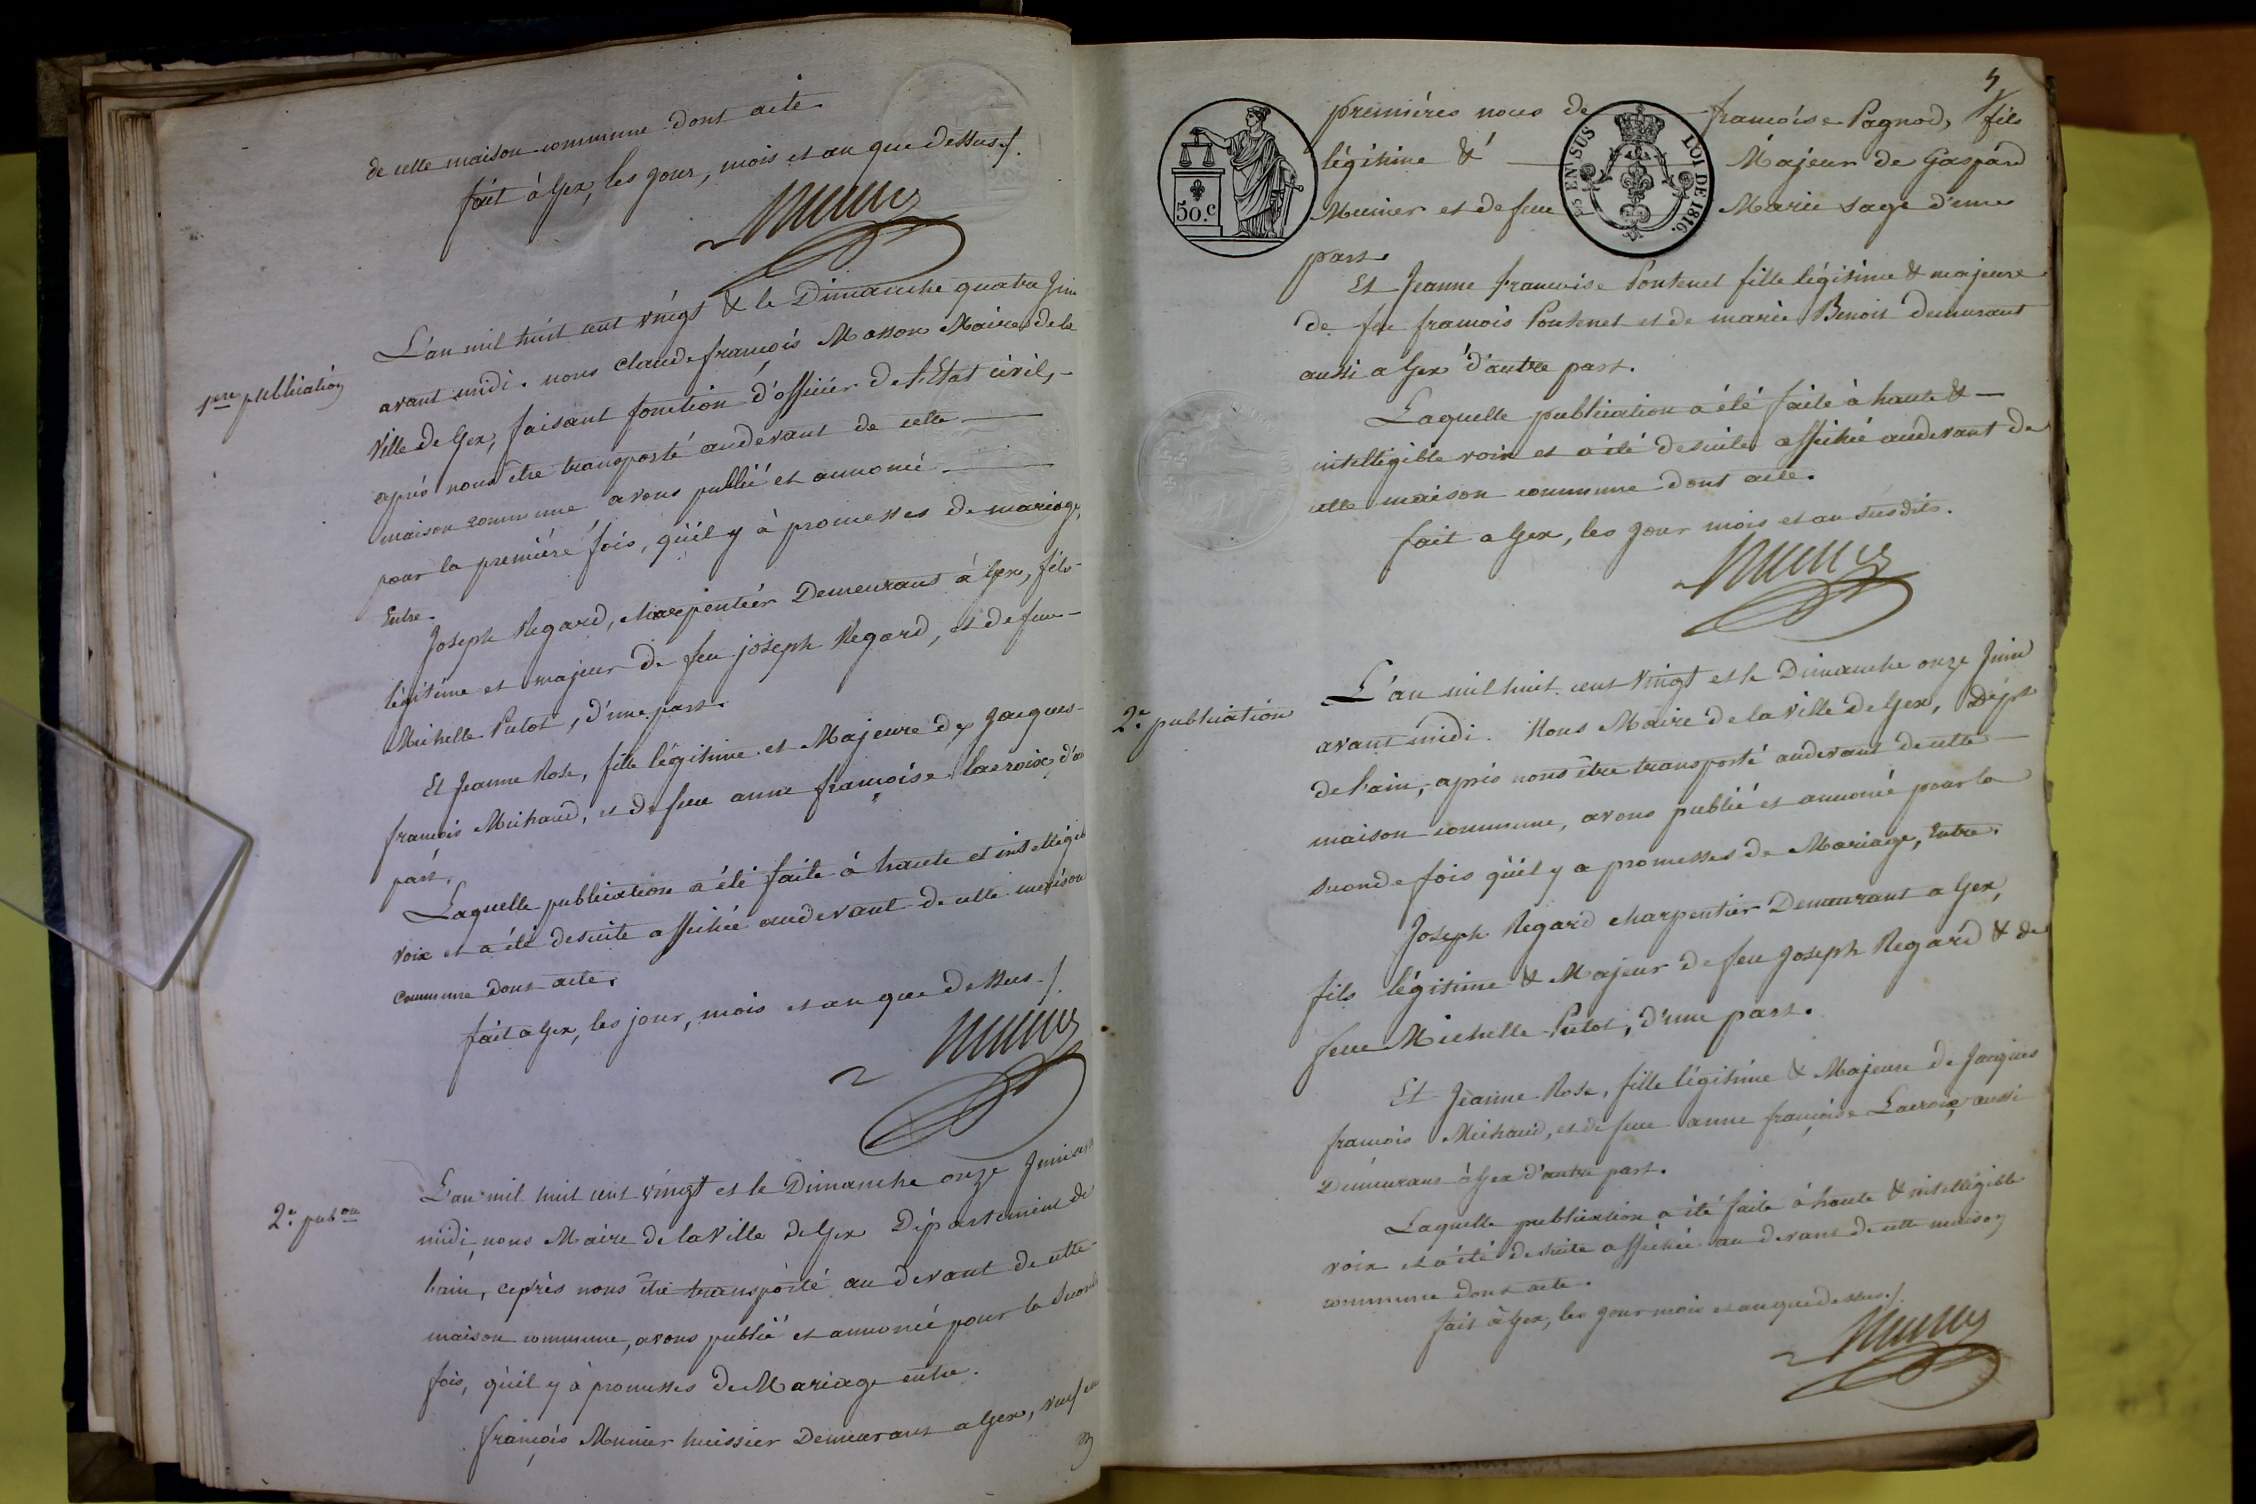 de cette maison commune dont acte
fait à Gex, les jour, mois et an que dessus ./.
L'an mil huit cent vingt & le Dimanche quatre Juin
1ere publication
avant midi. nous Claude françois Masson Maire de la
Ville de Gex, faisant fonction d'officier de l'Etat civil,
après nous être transporté audevant de cette
maison commune avons publié et annoncé
pour la première fois, qu'il y à promesses de mariage,
Entre.
Joseph Regard, charpentier Demeurant à Gex, fils
légitime et majeur de feu joseph Regard, et de feue
Michelle Putot, d'une part.
Et Jeanne Rose, fille légitime et Majeure de Jacques
françois Michaud, et de feue anne françoise Lacroix, d'a
part.
Laquelle publication a été faite à haute et intelligib
voix et a été desuite affichée audevant de cette maison
commune dont acte.
fait a Gex, les jour, mois et an que dessus ./.
L'an mil huit cent vingt et le Dimanche onze Juin
2e. pub.on
midi, nous Maire de la Ville de Gex Département de
l'ain, après nous être transporté au devant de cette
maison commune, avons publié et annoncé pour la second
fois, qu'il y à promesses de Mariage entre.
françois Munier huissier Demeurant a Gex, veuf en
5
premières noces de françoise Pagnod, fils
légitime & Majeur de Gaspard
Munier et de feue Marie Sage d'une
part
50.c
EN SUS
LOI DE 1816.
Et Jeanne francoise Pontenet fille légitime & majeure
de feu francois Pontenet et de marie Benoit demeurant
aussi a Gex d'autre part.
Laquelle publication a été faite à haute &
intelligible voix et a été desuite affichée audevant de
cette maison commune dont acte.
fait a Gex, les jour mois et an susdits.
L'an mil huit cent vingt et le Dimanche onze Juin
2e. publication
avant midi. Nous Maire de la Ville de Gex, Dépt
de l'ain, après nous être transporté audevant de cette
maison commune, avons publié et annoncé pour la
seconde fois qu'il y a promesses de Mariage, Entre.
Joseph Regard charpentier Demeurant a Gex,
fils légitime & Majeur de feu Joseph Regard & de
feue Michelle Putot, d'une part.
Et Jeanne Rose, fille légitime & Majeure de Jacques
francois Michaud, et de feue anne françoise Lacroix, aussi
Demeurant à Gex d'autre part.
Laquelle publication a été faite à haute & intelligible
voix et a été desuite affichée au devant de cette maison
commune dont acte.
fait à Gex, les jour mois et an que dessus ./.